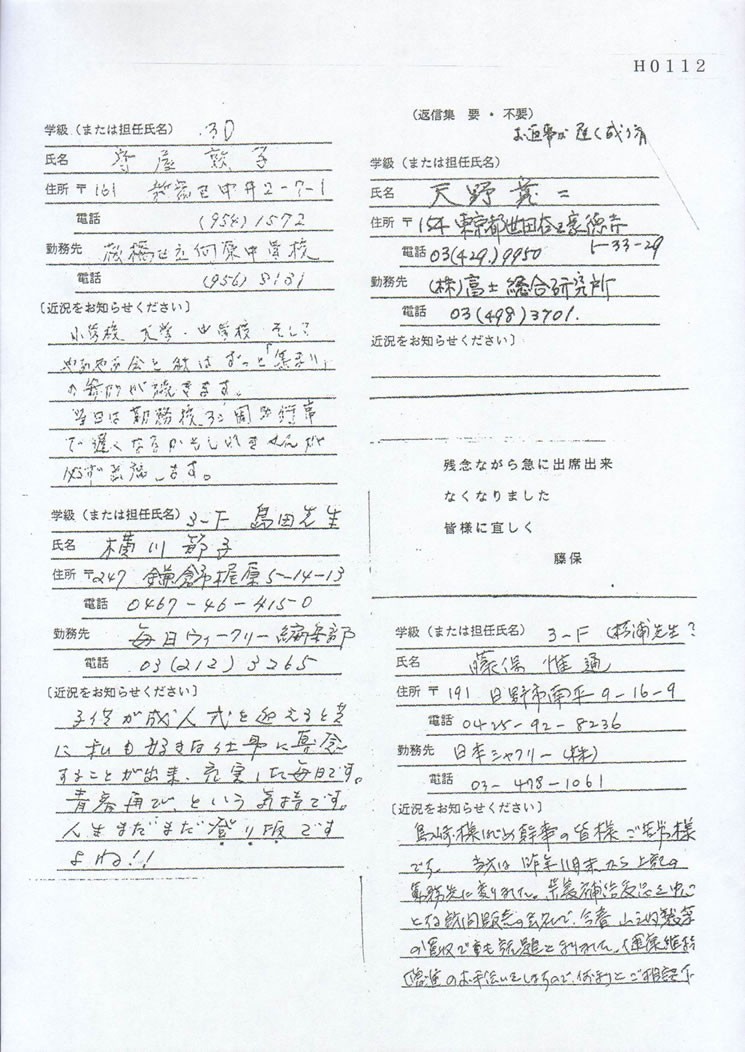 H0112
学級（または担任氏名） 3D
氏名
住所 〒161 中井2-7-1
電話 (954) 1572
勤務先 中学校
電話 (956) 8131
〔近況をお知らせください〕
小学校、大学、中学校 そして
会と私はずっと「集まり」
の 続きます。
当日は勤務校 周年行事
で遅くなるかもしれませんが
必ず出席します。
学級（または担任氏名） 3-F 島田先生
氏名 横川 節子
住所 〒247 鎌倉市梶原5-14-13
電話 0467-46-4150
勤務先 毎日ウィークリー編集部
電話 03(212)3265
〔近況をお知らせください〕
子供が成人式を迎えると共
に私も好きな仕事に専念
することが出来、充実した毎日です。
青春再び、という気持です。
人生まだまだ登り坂です
よね!!
（返信集 要・不要）
お返事が遅く成り
学級（または担任氏名）
氏名 天野 二
住所 〒154 東京都世田谷区豪徳寺
1-33-29
電話 03(429)9950
勤務先 (株)富士総合研究所
電話 03(498)3701.
近況をお知らせください〕
残念ながら急に出席出来
なくなりました
皆様に宜しく
藤保
学級（または担任氏名） 3-F (杉浦先生?
氏名 藤保 惟通
住所 〒191 日野市南平9-16-9
電話 0425-92-8236
勤務先 日本シャクリー(株)
電話 03-478-1061
〔近況をお知らせください〕
島崎様はじめ幹事の皆様ご苦労様
です。 昨年11月末から上記の
勤務先に変りました。栄養補給食品を中心
とする訪問販売の会社で、今春 山之内製薬
の買収で 話題と 健康維持
増進のお手伝いをしますので、 ご相談下